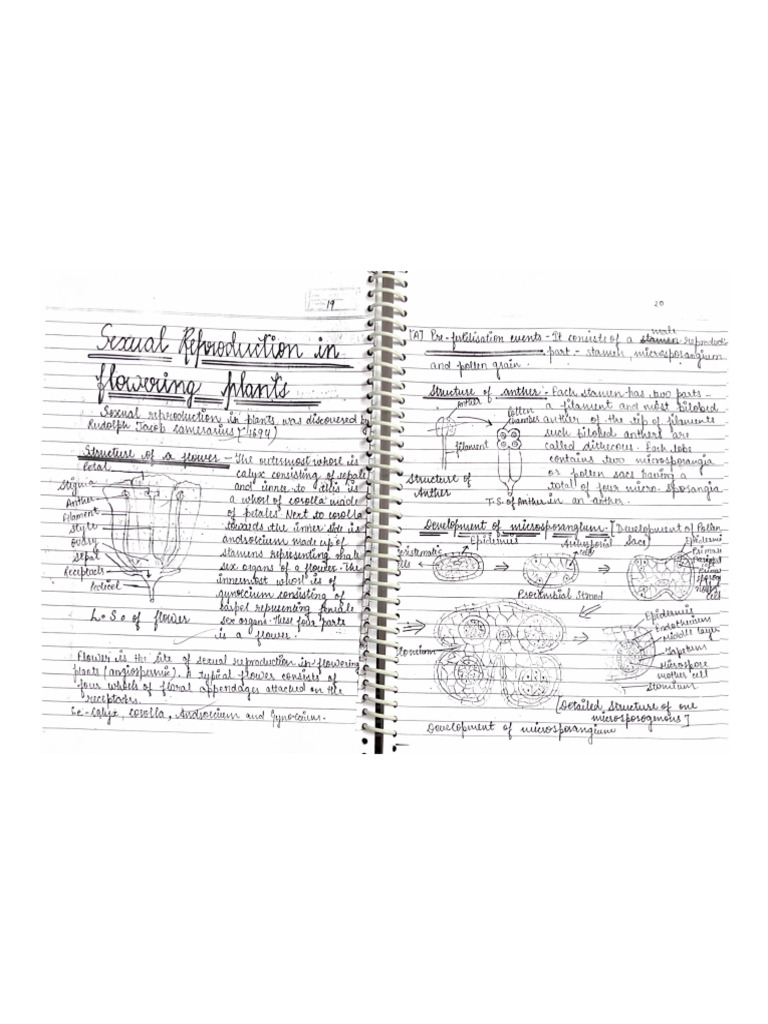 19
Sexual Reproduction in
flowering plants
Sexual reproduction in plants was discovered by
Rudolph Jacob Camerarius (1694)
Structure of a flower - The outermost whorl is
calyx consisting of sepals
and inner to this is
a whorl of corolla made
of petales. Next to corolla
towards the inner side is
androecium made up of
stamens representing male
sex organs of a flower. The
innermost whorl is of
gynoecium consisting of
carpel representing female
sex organs. These four parts
is a flower.
Petal
Stigma
Anther
Filament
Style
Ovary
Sepal
Receptacle
Pedicel
L.S. of flower
Flower is the site of sexual reproduction in flowering
plants (angiospermic). A typical flower consists of
four whorls of floral appendages attached on the
receptacle.
i.e.- Calyx, corolla, Androecium and Gynoecium.
20
[A] Pre-fertilisation events - It consists of a male reproductive
part - stamen, microsporangium
and pollen grain.
Structure of anther - Each stamen has two parts -
a filament and most bilobed
anther at the tip of filaments
such bilobed anthers are
called dithecous. Each lobe
contains two microsporangia
or pollen sacs having a
total of four micro-sporangia
in an anther.
Anther
Filament
Structure of
Anther
Pollen
chamber
T.S. of Anther
Development of microsporangium - [Development of Pollen
Sac]
Epidermis
Meristematic
cells
Archesporial
cells
Procambial Strand
Epidermis
Primary
parietal
cell
Primary
sporogenous
cell
Epidermis
Endothecium
Middle layer
Tapetum
Microspore
mother cell
Stomium
[Detailed Structure of one
microsporogenous]
Development of microsporangium